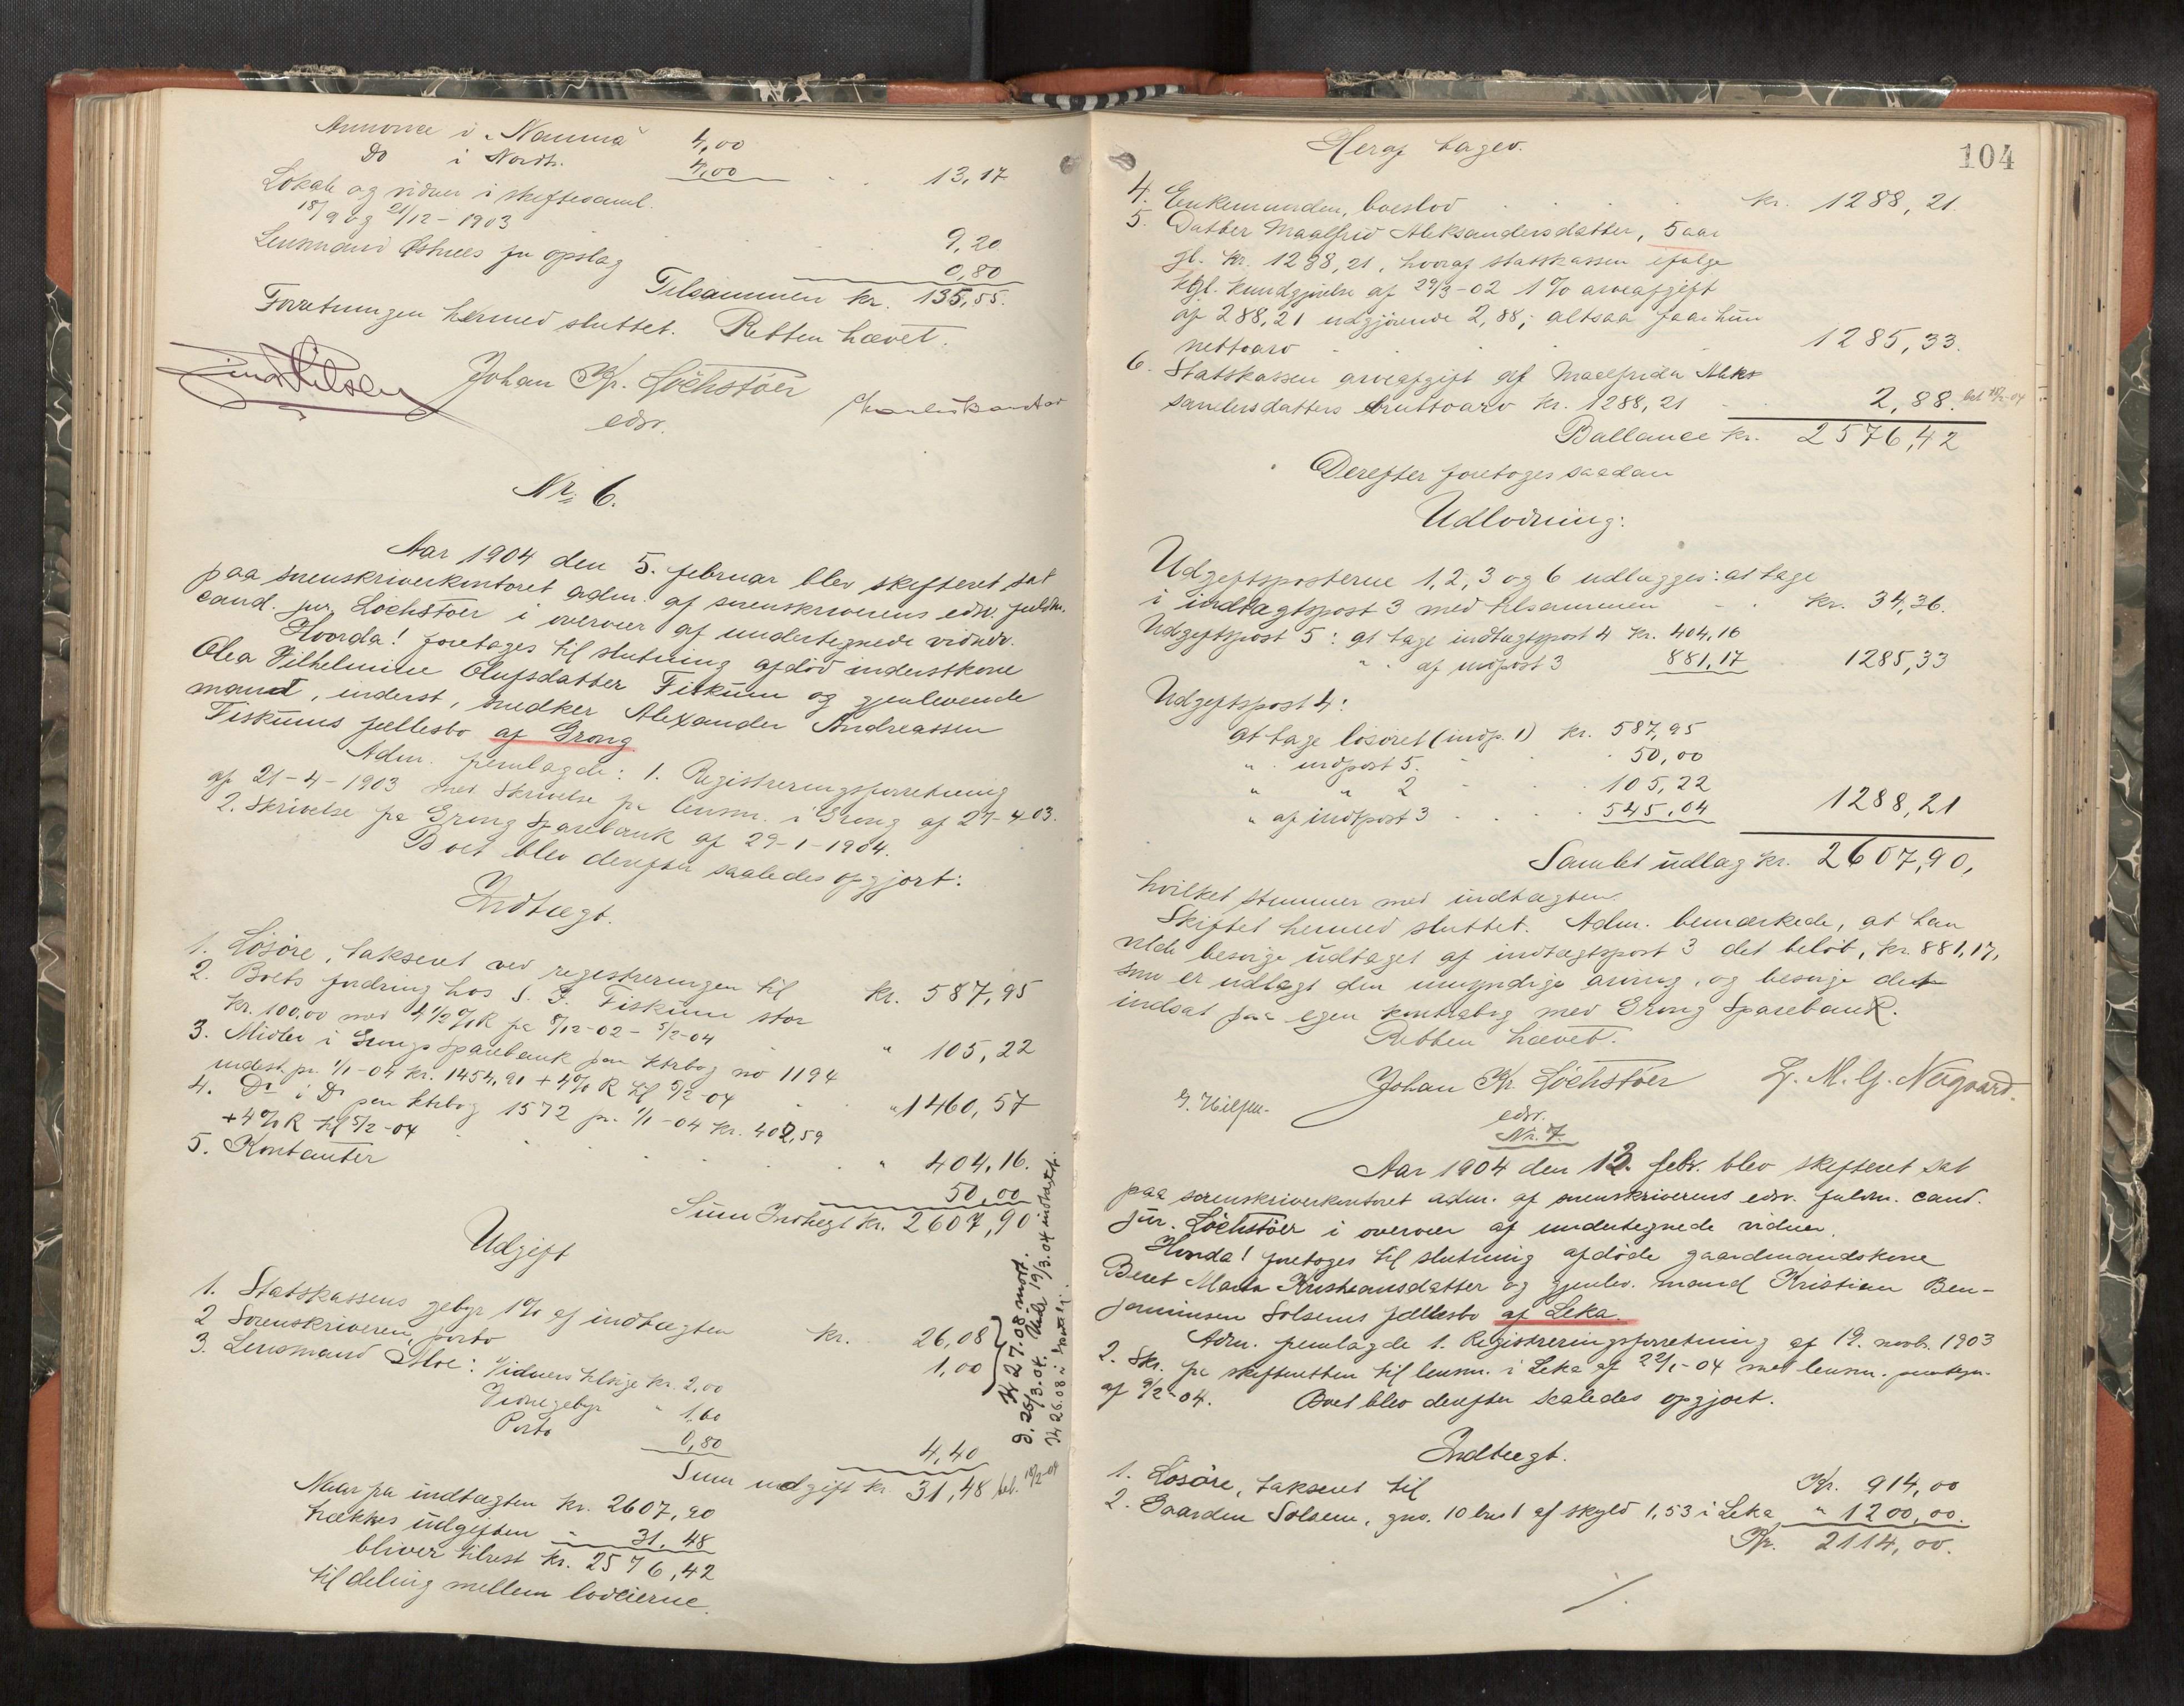 Annonce i "Namma" 4,00
Do i Nordtr. 4,00 13,17
Lokale og vidner i skiftesaml.
18/9 og 21/12 - 1903 9,20
Lensmand Østnes for opslag 0,80
Tilsammen kr. 135,55.
Forretningen hermed sluttet. Retten hævet.
Johan Kr. Löchstöer
edsv.
Nr. 6.
Aar 1904 den 5. februar blev skifteret sat
paa sorenskriverkontoret adm. af sorenskriverens edsv. fuldm.
cand. jur. Löchstöer i overvær af undertegnede vidner.
Hvorda! foretages til slutning afdöd inderstkone
Olea Vilhelmine Olufsdatter Fiskum og gjenlevende
mand, inderst, snedker Alexander Andreassen
Fiskums fællesbo af Grong
Adm. fremlagde: 1. Registreringsforretning
af 21-4-1903 med skrivelse fra lensm. i Grong af 27-4-03.
2. Skrivelse fra Grong Sparebank af 29-1-1904.
Boet blev derefter saaledes opgjort:
Indtægt.
1. Lösöre, takseret ved registreringen til kr. 587,95
2. Boets fordring hos S. P. Fiskum stor
kr. 100,00 med 4 1/2 % R fra 5/12-02 - 5/2-04 " 105,22
3. Midler i Grongs Sparebank paa ktrbog no 1194
indest. pr. 1/1-04 kr. 1454,91 + 4% R til 5/2-04 " 1460,57
4. Do i Do paa ktrbog 1572 pr. 1/1-04 kr. 402,59
+ 4% R til 5/2-04 " 404,16.
5. Kontanter 50,00
Sum Indtægt kr. 2607,90
Udgift
1. Statskassens gebyr 1% af indtægten kr. 26,08
2 Sorenskriveren, porto 1,00
3. Lensmand Moe: Vidners tilsige kr. 2,00
Vidnegebyr " 1,60
Porto 0,80 4,40
Sum udgift kr. 31,48 bet. 18/2-04
Kr 27.08 mort.
Naar fra indtægten kr. 2607,90
trækkes udgiften - 31,48
bliver tilrest kr. 2576,42
til deling mellem lodeierne.
104
Heraf tages.
4. Enkemanden, boeslod kr. 1288,21.
5. Datter Maalfrid Aleksandersdatter, 5 aar
gl. kr. 1288,21, hvoraf statskassen ifølge
kgl. kundgjørelse af 29/3-02 1% arveafgift
af 288,21 udgjörende 2,88; altsaa faar hun
nettoarv 1285,33.
6. Statskassen arveafgift af Maalfrida Aleks
sandersdatters bruttoarv kr. 1288,21 2,88. bet 18/2-04
Ballance kr. 2576,42
Derefter foretoges saadan
Udlodning:
Udgiftsposterne 1, 2, 3 og 6 udlægges: at tage
i indtægtspost 3 med tilsammen kr. 34,36.
Udgiftspost 5: at tage indtægtspost 4 kr. 404,16
" af indpost 3 881,17 1285,33
Udgiftspost 4:
at tage lösöret (indp. 1) kr. 587,95
" indpost 5. 50,00
" " 2 105,22
" af indtpost 3 545,04 1288,21
Samlet udlag kr. 2607,90,
hvilket stemmer med indtægten.
Skiftet hermed sluttet. Adm. bemærkede, at han
vilde besörge udtaget af indtægtspost 3 det belöb, kr. 881,17,
som er udlagt den umyndige arving, og besörge dette
indsat paa egen kontrabog med Grong Sparebank.
Retten hævet.
Johan Kr. Löchstöer L. M. G. Nögaard.
J. Nilsen. edsv.
Nr. 7.
Aar 1904 den 13. febr. blev skifteret sat
paa sorenskriverkontoret adm. af sorenskriverens edsv. fuldm. cand.
jur. Löchstöer i overvær af undertegnede vidner.
Hvorda! foretoges til slutning afdöde gaardmandskone
Beret Marta Kristiansdatter og gjenlev. mand Kristian Ben-
jaminsen Solsems fællesbo af Leka.
Adm. fremlagde 1. Registreringsforretning af 19. novb. 1903
2. Skr. fra skifteretten til lensm. i Leka af 22/1-04 med lensm. paategn.
af 9/2-04. Boet blev derefter saaledes opgjort.
Indtægt.
1. Lösöre, takseret til Kr. 914,00
2. Gaarden Solsem, gno. 10 bno 1 af skyld 1,53 i Leka " 1200,00.
Kr. 2114,00.